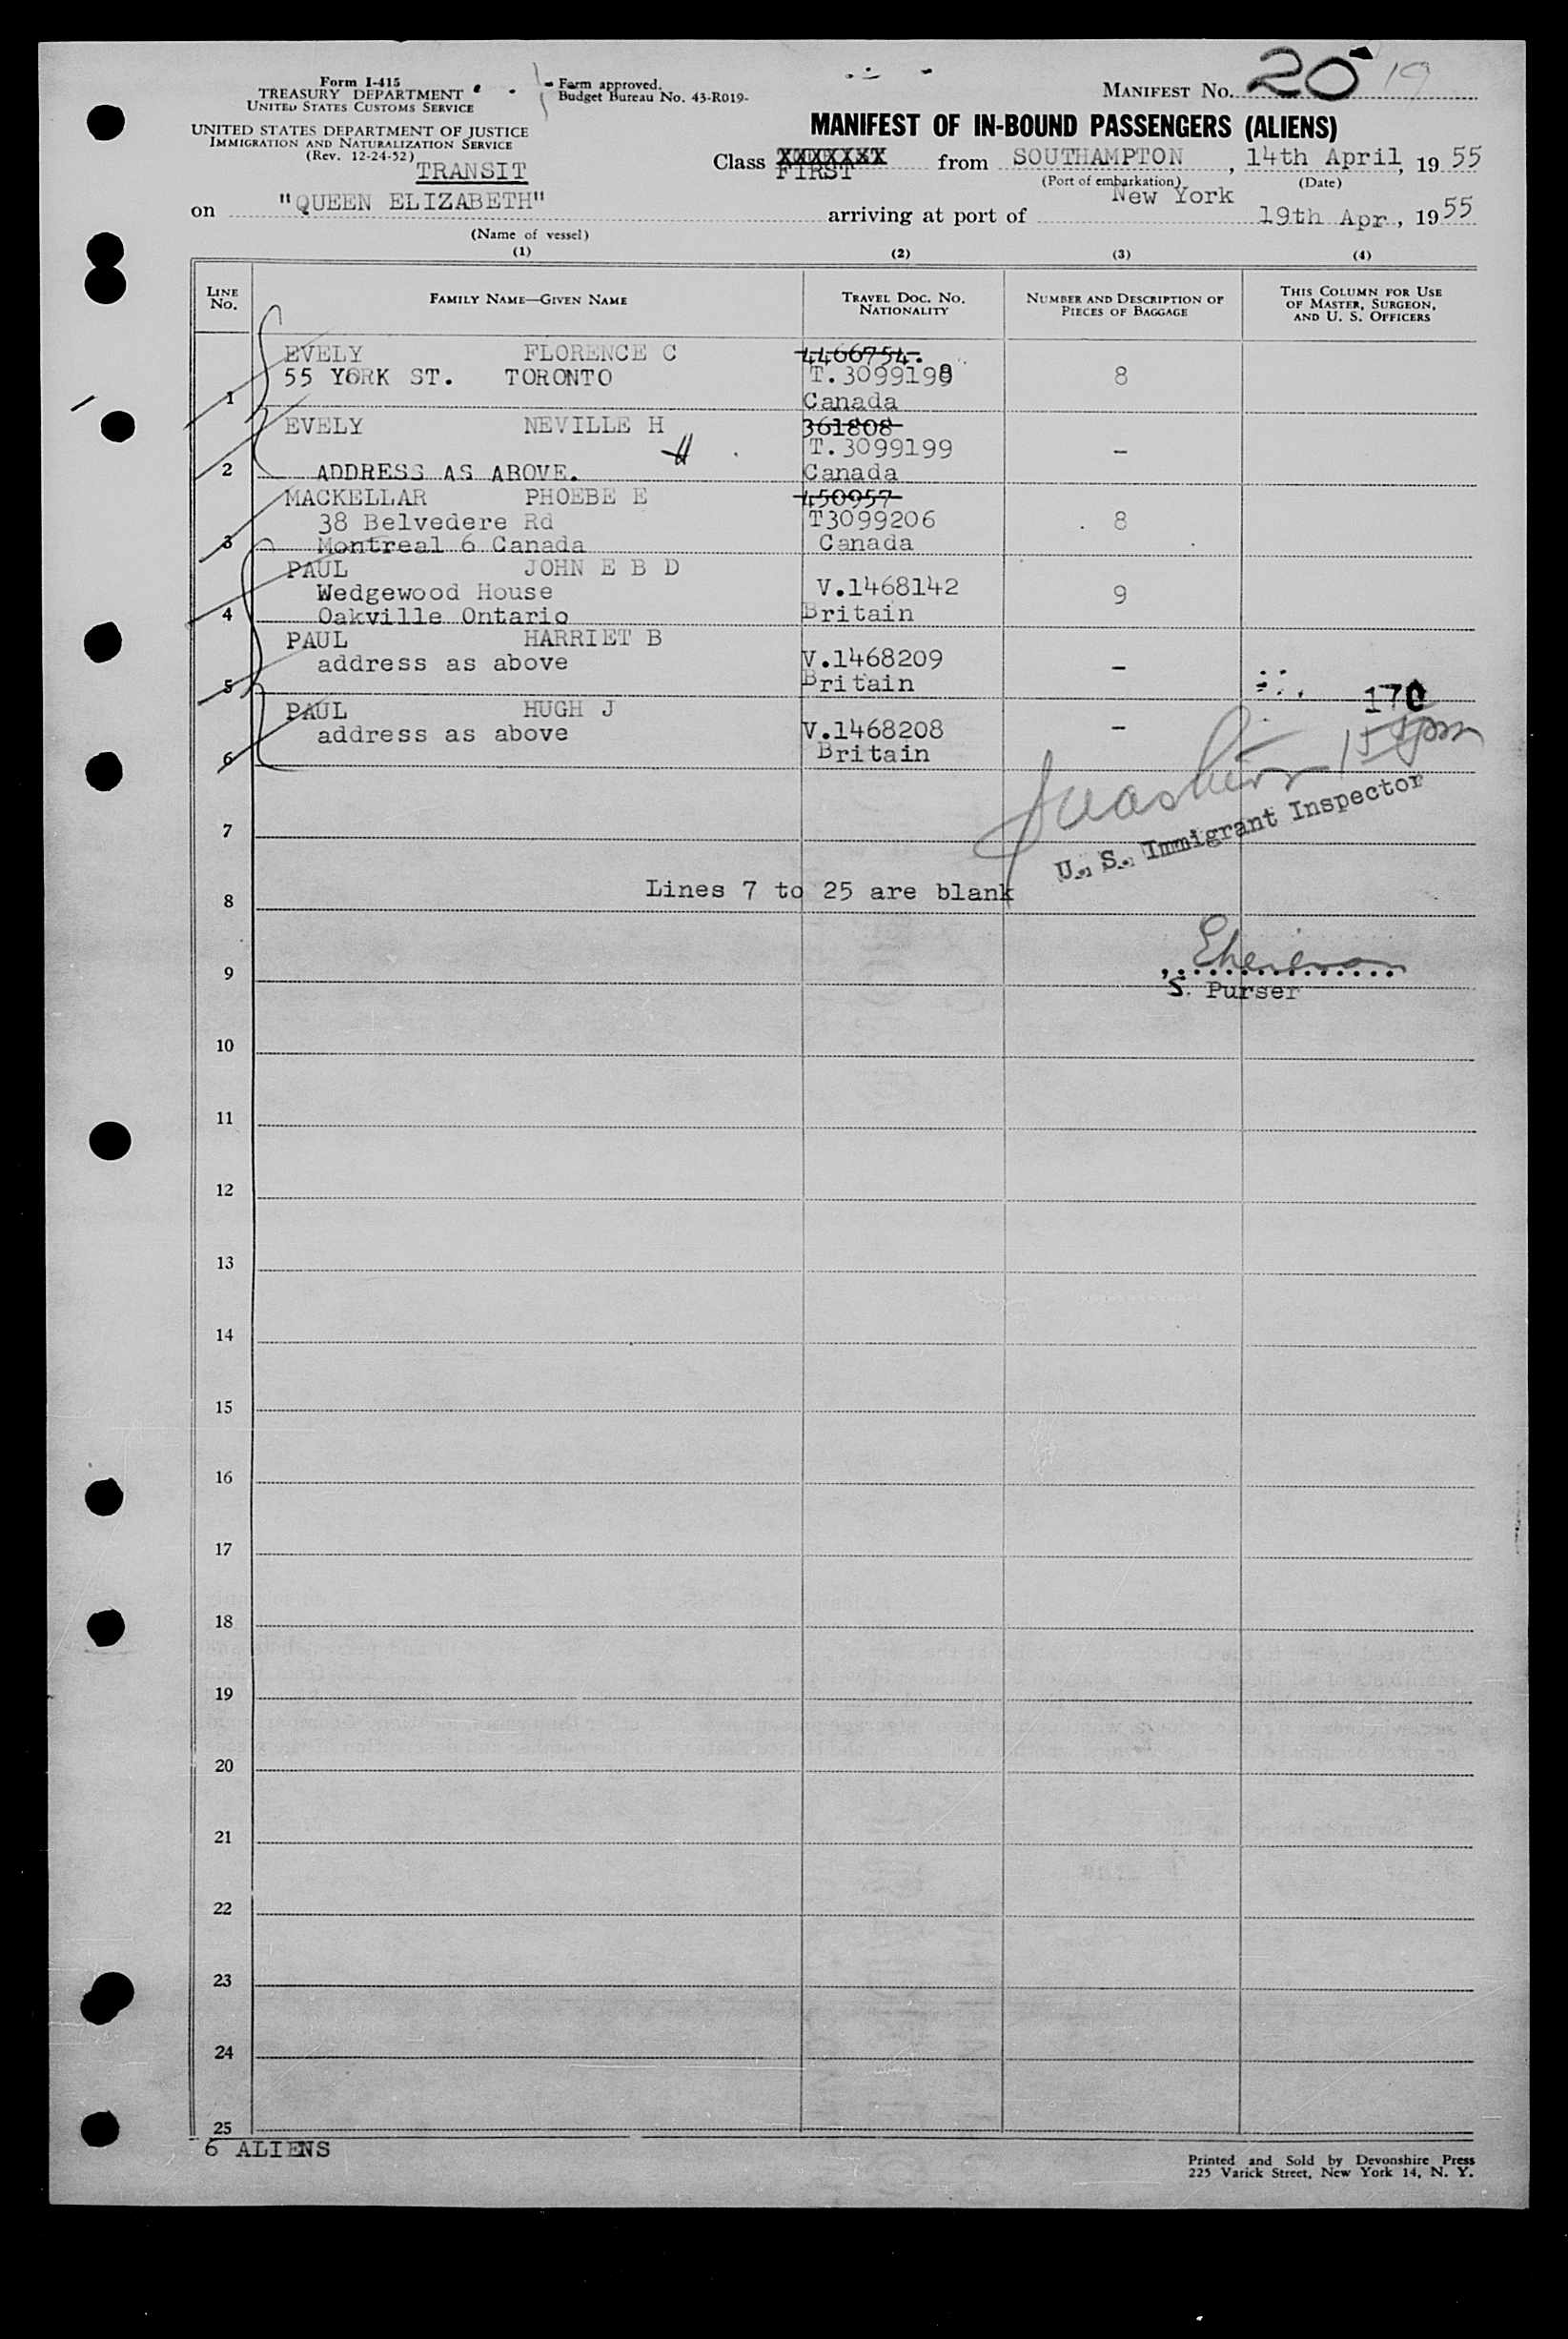 Form I-415
TREASURY DEPARTMENT
UNITED STATES CUSTOMS SERVICE
Form approved.
Budget Bureau No. 43-R019-
MANIFEST NO. 20 19
UNITED STATES DEPARTMENT OF JUSTICE
IMMIGRATION AND NATURALIZATION SERVICE
(Rev. 12-24-52)
TRANSIT
MANIFEST OF IN-BOUND PASSENGERS (ALIENS)
Class XXXXXXX FIRST from SOUTHAMPTON, 14th April, 1955
(Port of embarkation) (Date)
on "QUEEN ELIZABETH" arriving at port of New York 19th Apr, 1955
(Name of vessel)
(1) (2) (3) (4)
LINE NO.
FAMILY NAME—GIVEN NAME
TRAVEL DOC. NO. NATIONALITY
NUMBER AND DESCRIPTION OF PIECES OF BAGGAGE
THIS COLUMN FOR USE OF MASTER, SURGEON, AND U. S. OFFICERS
EVELY FLORENCE C 4466754.
55 YORK ST. TORONTO T.3099198 8
1 Canada
EVELY NEVILLE H 361808
T.3099199 –
2 ADDRESS AS ABOVE. Canada
MACKELLAR PHOEBE E 450957
38 Belvedere Rd T3099206 8
3 Montreal 6 Canada Canada
PAUL JOHN E B D
Wedgewood House V.1468142 9
4 Oakville Ontario Britain
PAUL HARRIET B
address as above V.1468209 –
5 Britain
170
PAUL HUGH J
address as above V.1468208 –
6 Britain
7
U. S. Immigrant Inspector
Lines 7 to 25 are blank
8
9
S. Purser
10
11
12
13
14
15
16
17
18
19
20
21
22
23
24
25
6 ALIENS
Printed and Sold by Devonshire Press
225 Varick Street, New York 14, N. Y.